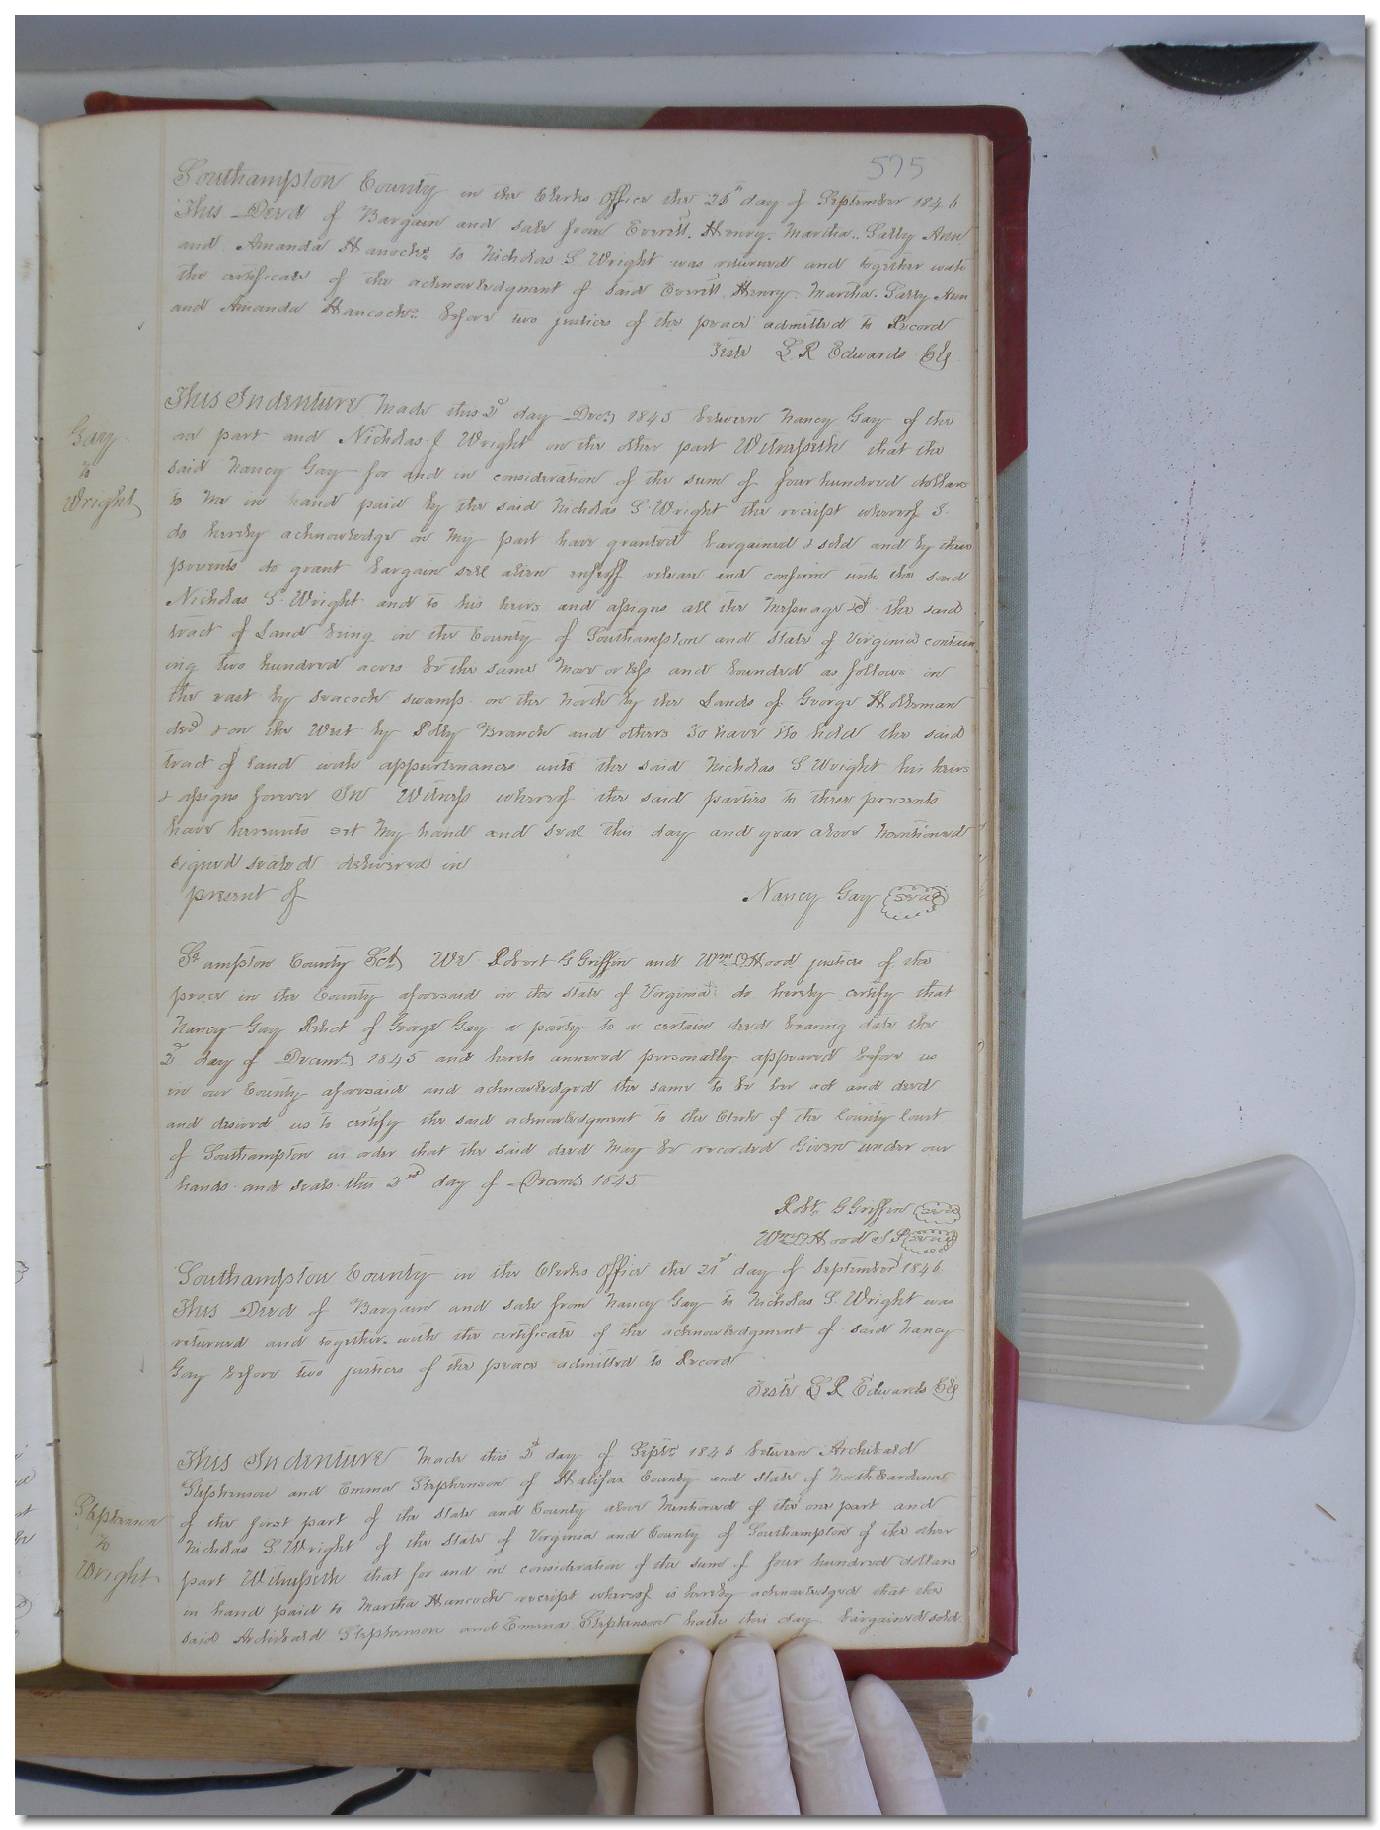 575
Southampton County in the Clerks Office the 21st day of September 1846
This Deed of Bargain and sale from Everett. Henry. Martha.. Sally Ann
and Amanda Hancocks to Nicholas S Wright was returned and together with
the certificate of the acknowledgment of said Everett Henry. Martha. Sally Ann
and Amanda Hancocks before two justices of the peace admitted to Record
Teste L. R Edwards Clk
Gay
to
Wright
This Indenture Made this 2d day Decr 1845 between Nancy Gay of the
on part and Nicholas S Wright on the other part Witnesseth that the
said Nancy Gay for and in consideration of the sum of four hundred dollars
to me in hand paid by the said Nicholas S Wright the receipt whereof I
do hereby acknowledge on my part have granted bargained & sold and by these
presents do grant bargain sell alien enfeoff release and confirm unto the said
Nicholas S. Wright and to his heirs and assigns all the Messuage & the said
tract of Land being in the County of Southampton and State of Virginia contain
ing two hundred acres be the same more or less and bounded as follows on
the east by Seacock swamp on the North by the Lands of George Holleman
decd & on the West by Polly Branch and others To have & to hold the said
tract of land with appurtenances unto the said Nicholas S Wright his heirs
& assigns forever In Witness whereof the said parties to these presents
have hereunto set my hand and seal this day and year above mentioned
signed sealed delivered in
present of
Nancy Gay seal
Sthampton County Sct We Robert G Griffin and Wm D Hood justices of the
peace in the County aforesaid in the State of Virginia do hereby certify that
Nancy Gay Relict of George Gay a party to a certain deed bearing date the
2d day of Decemr 1845 and hereto annexed personally appeared before us
in our County aforesaid and acknowledged the same to be her act and deed
and desired us to certify the said acknowledgment to the Clerk of the County Court
of Southampton in order that the said deed may be recorded Given under our
hands and seals this 2nd day of Decemr 1845
Robt. G Griffin seal
Wm D Hood J P seal
Southampton County in the Clerks Office the 21st day of September 1846
This Deed of Bargain and sale from Nancy Gay to Nicholas S. Wright was
returned and together with the certificate of the acknowledgment of said Nancy
Gay before two justices of the peace admitted to Record
Teste L R Edwards Clk
Stephenson
to
Wright
This Indenture Made this 2d day of Septr 1846 between Archibald
Stephenson and Emma Stephenson of Halifax County and State of North Carolina
of the first part of the State and County above mentioned of the one part and
Nicholas S. Wright of the State of Virginia and County of Southampton of the other
part Witnesseth that for and in consideration of the sum of four hundred dollars
in hand paid to Martha Hancock receipt whereof is hereby acknowledged that the
said Archibald Stephenson and Emma Stephenson hath this day bargained sold